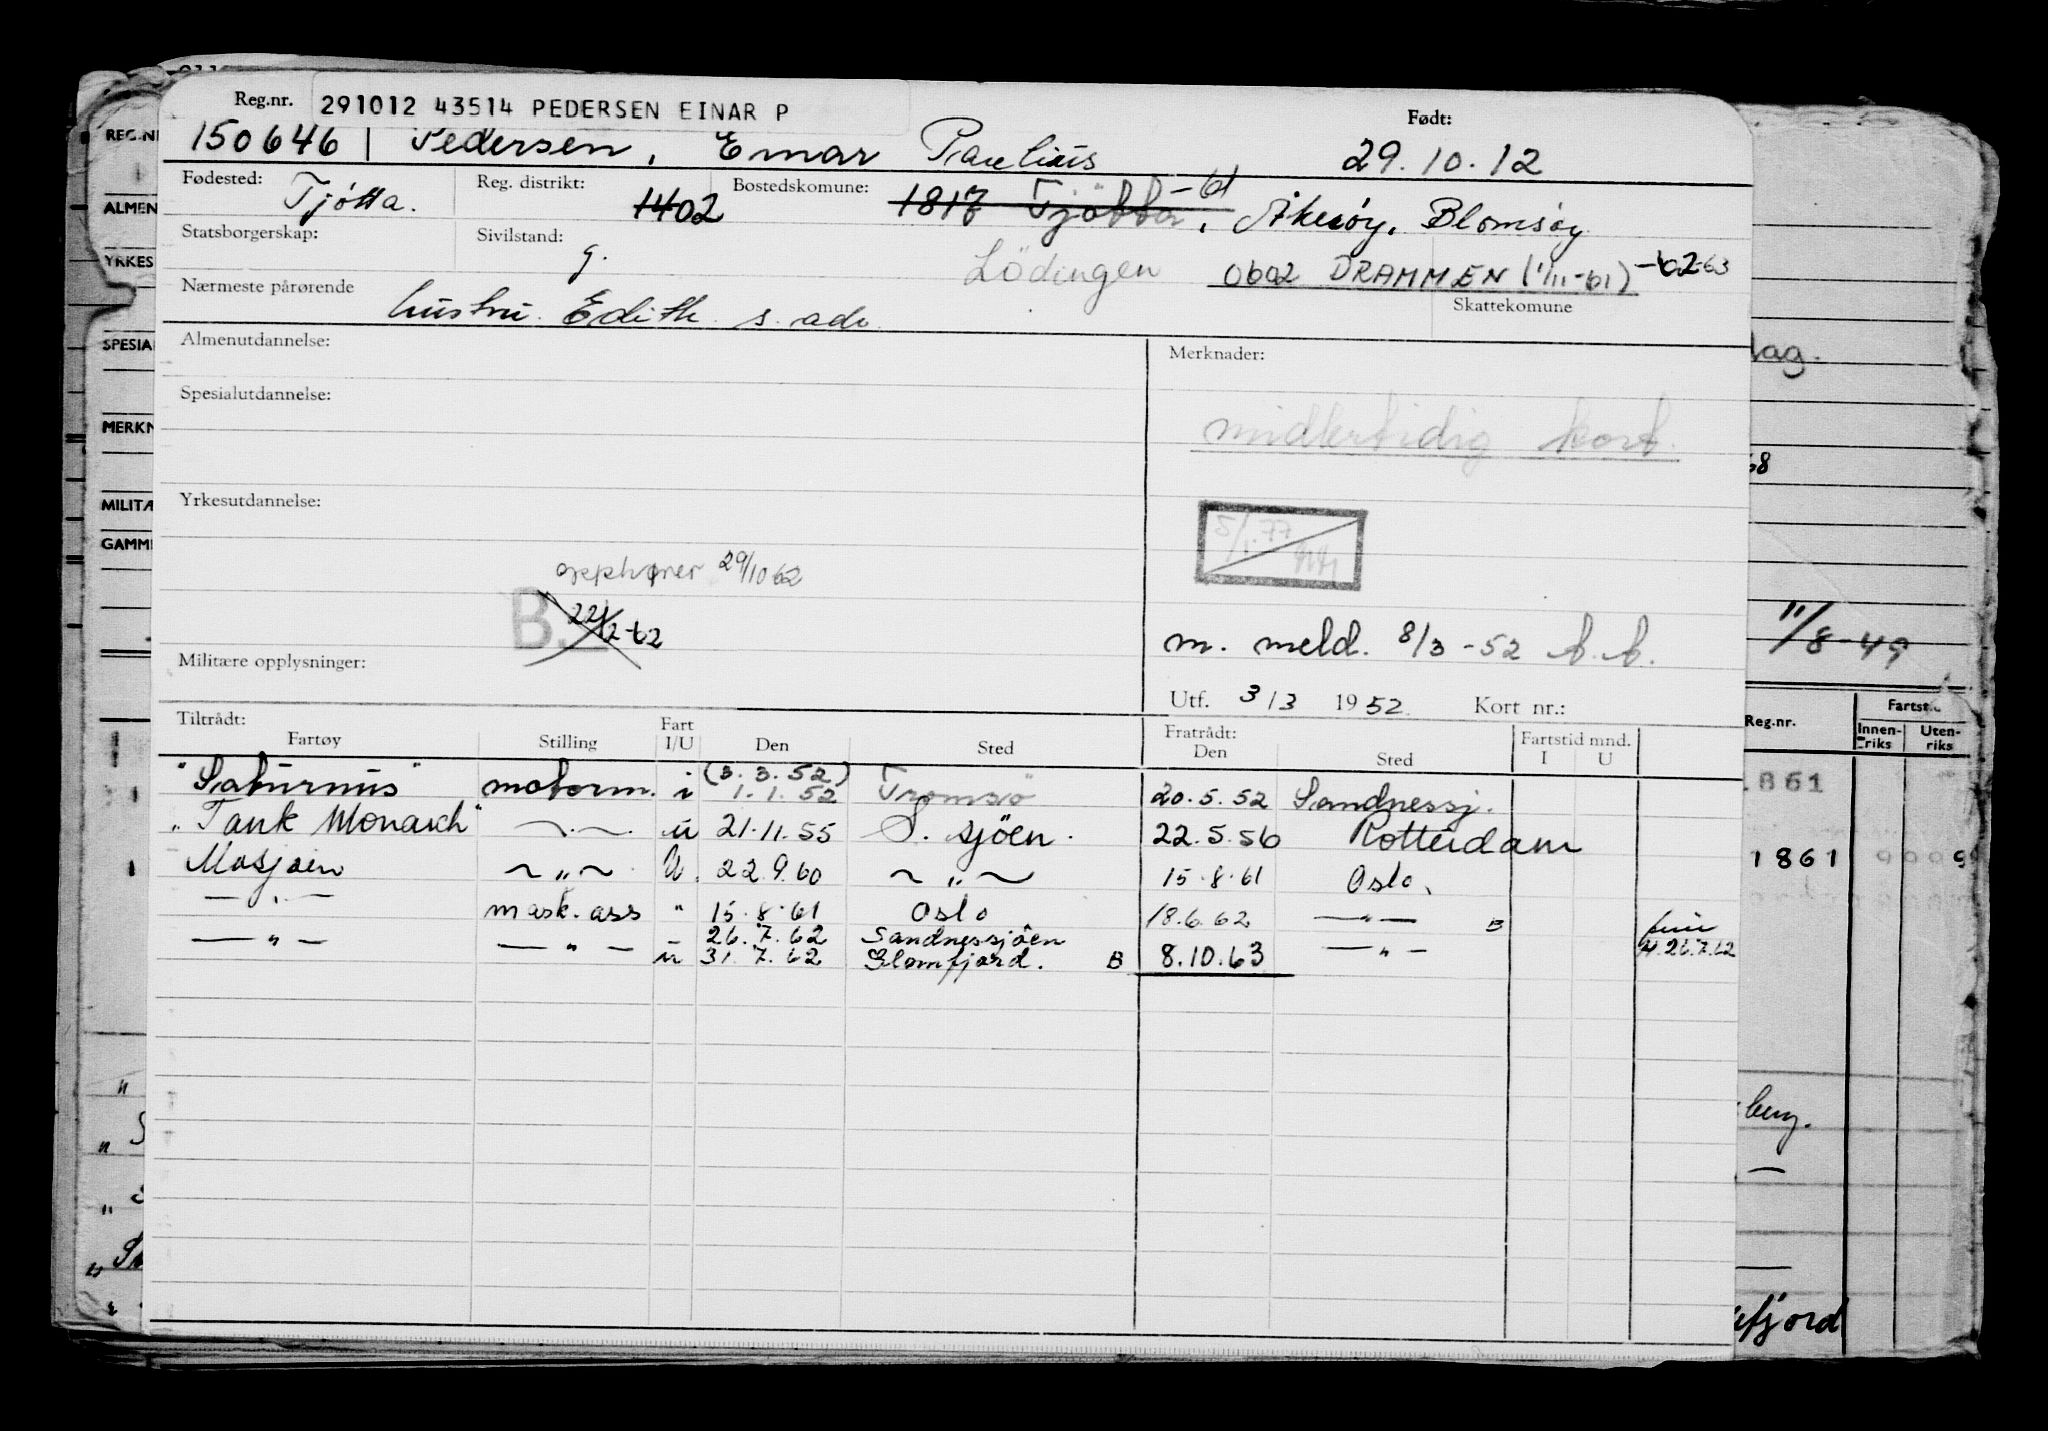 Reg.nr. 291012 43514 PEDERSEN EINAR P Født:
150646 Pedersen, Einar Paulius 29.10.12
Fødested: Tjøtta. Reg. distrikt: 1402 Bostedskomune: 1817 Tjötta -61, Åkerøy, Blomsøy
Statsborgerskap: Sivilstand: g. Lödingen 0602 DRAMMEN (1/11-61) -62-63
Nærmeste pårørende hustru. Edith s. adr. Skattekomune
Almenutdannelse: Merknader:
Spesialutdannelse: midlertidig kort.
Yrkesutdannelse: 5/1.77
opphører 29/10 62
B. 22/2-62
Militære opplysninger: m. meld. 8/3 -52
Utf. 3/3 1952 Kort nr.:
Tiltrådt: Fartøy Stilling Fart I/U Den Sted Fratrådt: Den Sted Fartstid mnd. I U
"Saturnus" motorm. i (3.3.52) 1.1.52 Tromsø 20.5.52 Sandnessj.
"Tank Monarch" —.— u 21.11.55 S.sjöen. 22.5.56 Rotterdam
Mosjøen —„— U. 22.9.60 —„— 15.8.61 Oslo.
—„— mask. ass " 15.8.61 Oslo 18.6.62 —"— B ferie
—"— —"— 26.7.62 Sandnessjöen
u 31.7.62 Glomfjord. B 8.10.63 —"— 26.7.62
REG.NR
ALMEN
YRKES
SPESIA
MERKN
MILITÆ
GAMM
dag.
68
11/8-49
Reg.nr. Fartst.
Innen-riks Uten-riks
1861
1861
berg.
fjord